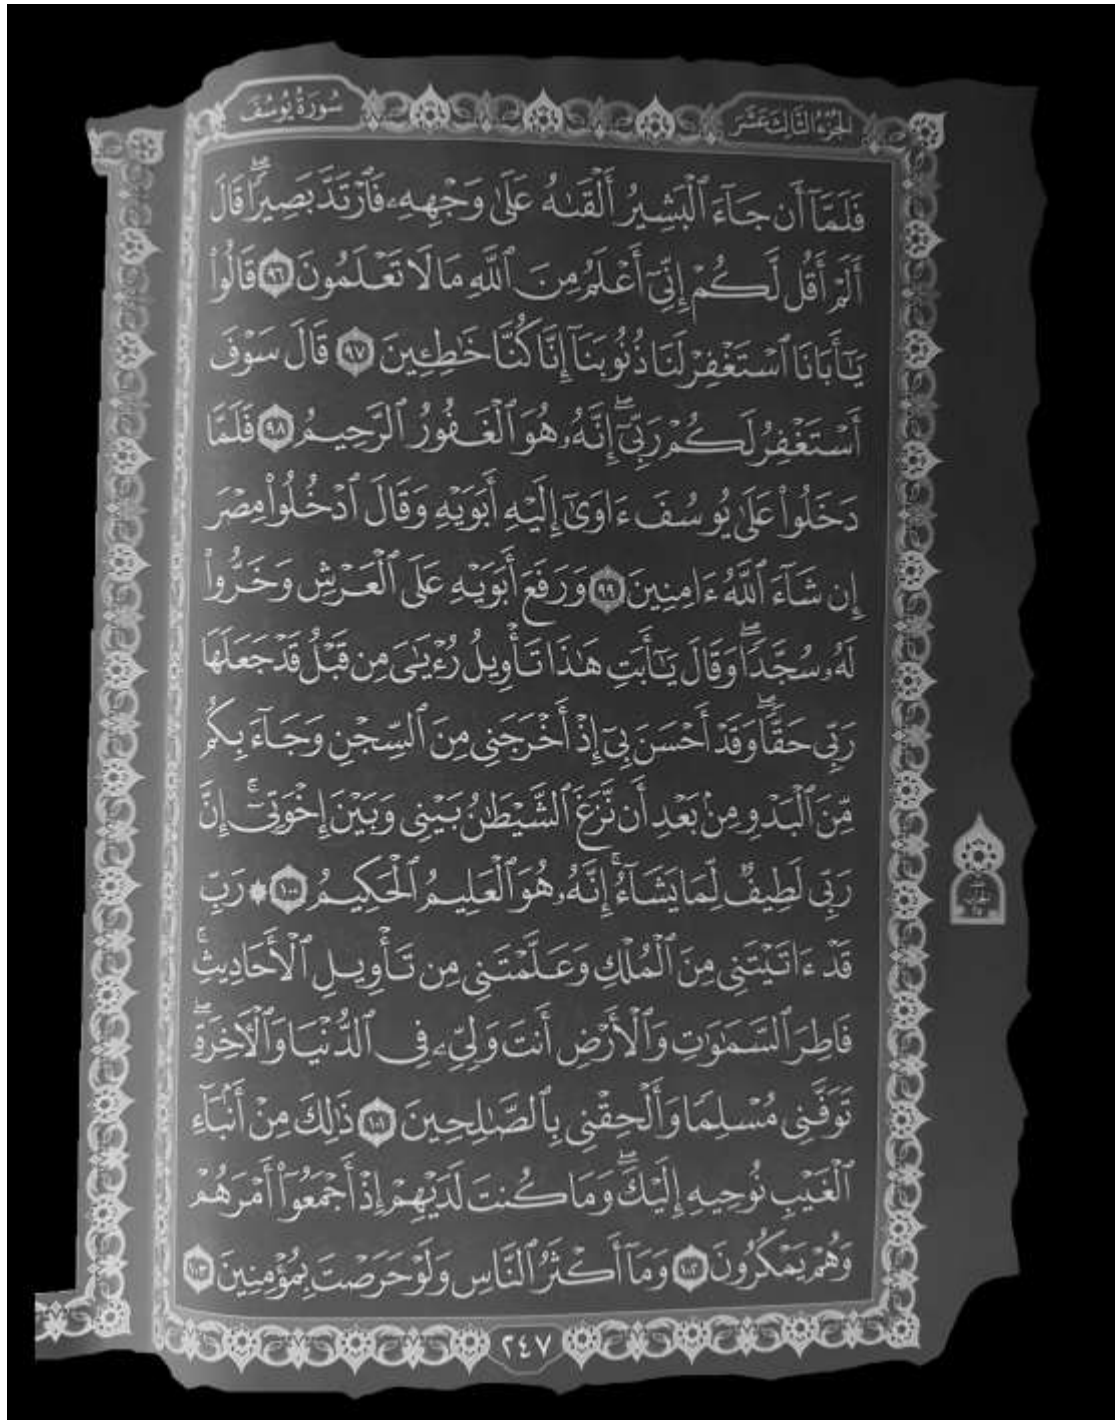 الجزء الثالث عشر
سورة يوسف
فَلَمَّآ أَن جَآءَ ٱلۡبَشِيرُ أَلۡقَىٰهُ عَلَىٰ وَجۡهِهِۦ فَٱرۡتَدَّ بَصِيرٗاۖ قَالَ
أَلَمۡ أَقُل لَّكُمۡ إِنِّيٓ أَعۡلَمُ مِنَ ٱللَّهِ مَا لَا تَعۡلَمُونَ ٩٦ قَالُواْ
يَٰٓأَبَانَا ٱسۡتَغۡفِرۡ لَنَا ذُنُوبَنَآ إِنَّا كُنَّا خَٰطِـِٔينَ ٩٧ قَالَ سَوۡفَ
أَسۡتَغۡفِرُ لَكُمۡ رَبِّيٓۖ إِنَّهُۥ هُوَ ٱلۡغَفُورُ ٱلرَّحِيمُ ٩٨ فَلَمَّا
دَخَلُواْ عَلَىٰ يُوسُفَ ءَاوَىٰٓ إِلَيۡهِ أَبَوَيۡهِ وَقَالَ ٱدۡخُلُواْ مِصۡرَ
إِن شَآءَ ٱللَّهُ ءَامِنِينَ ٩٩ وَرَفَعَ أَبَوَيۡهِ عَلَى ٱلۡعَرۡشِ وَخَرُّواْ
لَهُۥ سُجَّدٗاۖ وَقَالَ يَٰٓأَبَتِ هَٰذَا تَأۡوِيلُ رُءۡيَٰيَ مِن قَبۡلُ قَدۡ جَعَلَهَا
رَبِّي حَقّٗاۖ وَقَدۡ أَحۡسَنَ بِيٓ إِذۡ أَخۡرَجَنِي مِنَ ٱلسِّجۡنِ وَجَآءَ بِكُم
مِّنَ ٱلۡبَدۡوِ مِنۢ بَعۡدِ أَن نَّزَغَ ٱلشَّيۡطَٰنُ بَيۡنِي وَبَيۡنَ إِخۡوَتِيٓۚ إِنَّ
رَبِّي لَطِيفٞ لِّمَا يَشَآءُۚ إِنَّهُۥ هُوَ ٱلۡعَلِيمُ ٱلۡحَكِيمُ ١٠٠ ۞ رَبِّ
قَدۡ ءَاتَيۡتَنِي مِنَ ٱلۡمُلۡكِ وَعَلَّمۡتَنِي مِن تَأۡوِيلِ ٱلۡأَحَادِيثِۚ
فَاطِرَ ٱلسَّمَٰوَٰتِ وَٱلۡأَرۡضِ أَنتَ وَلِيِّۦ فِي ٱلدُّنۡيَا وَٱلۡأٓخِرَةِۖ
تَوَفَّنِي مُسۡلِمٗا وَأَلۡحِقۡنِي بِٱلصَّٰلِحِينَ ١٠١ ذَٰلِكَ مِنۡ أَنۢبَآءِ
ٱلۡغَيۡبِ نُوحِيهِ إِلَيۡكَۖ وَمَا كُنتَ لَدَيۡهِمۡ إِذۡ أَجۡمَعُوٓاْ أَمۡرَهُمۡ
وَهُمۡ يَمۡكُرُونَ ١٠٢ وَمَآ أَكۡثَرُ ٱلنَّاسِ وَلَوۡ حَرَصۡتَ بِمُؤۡمِنِينَ ١٠٣
٢٤٧